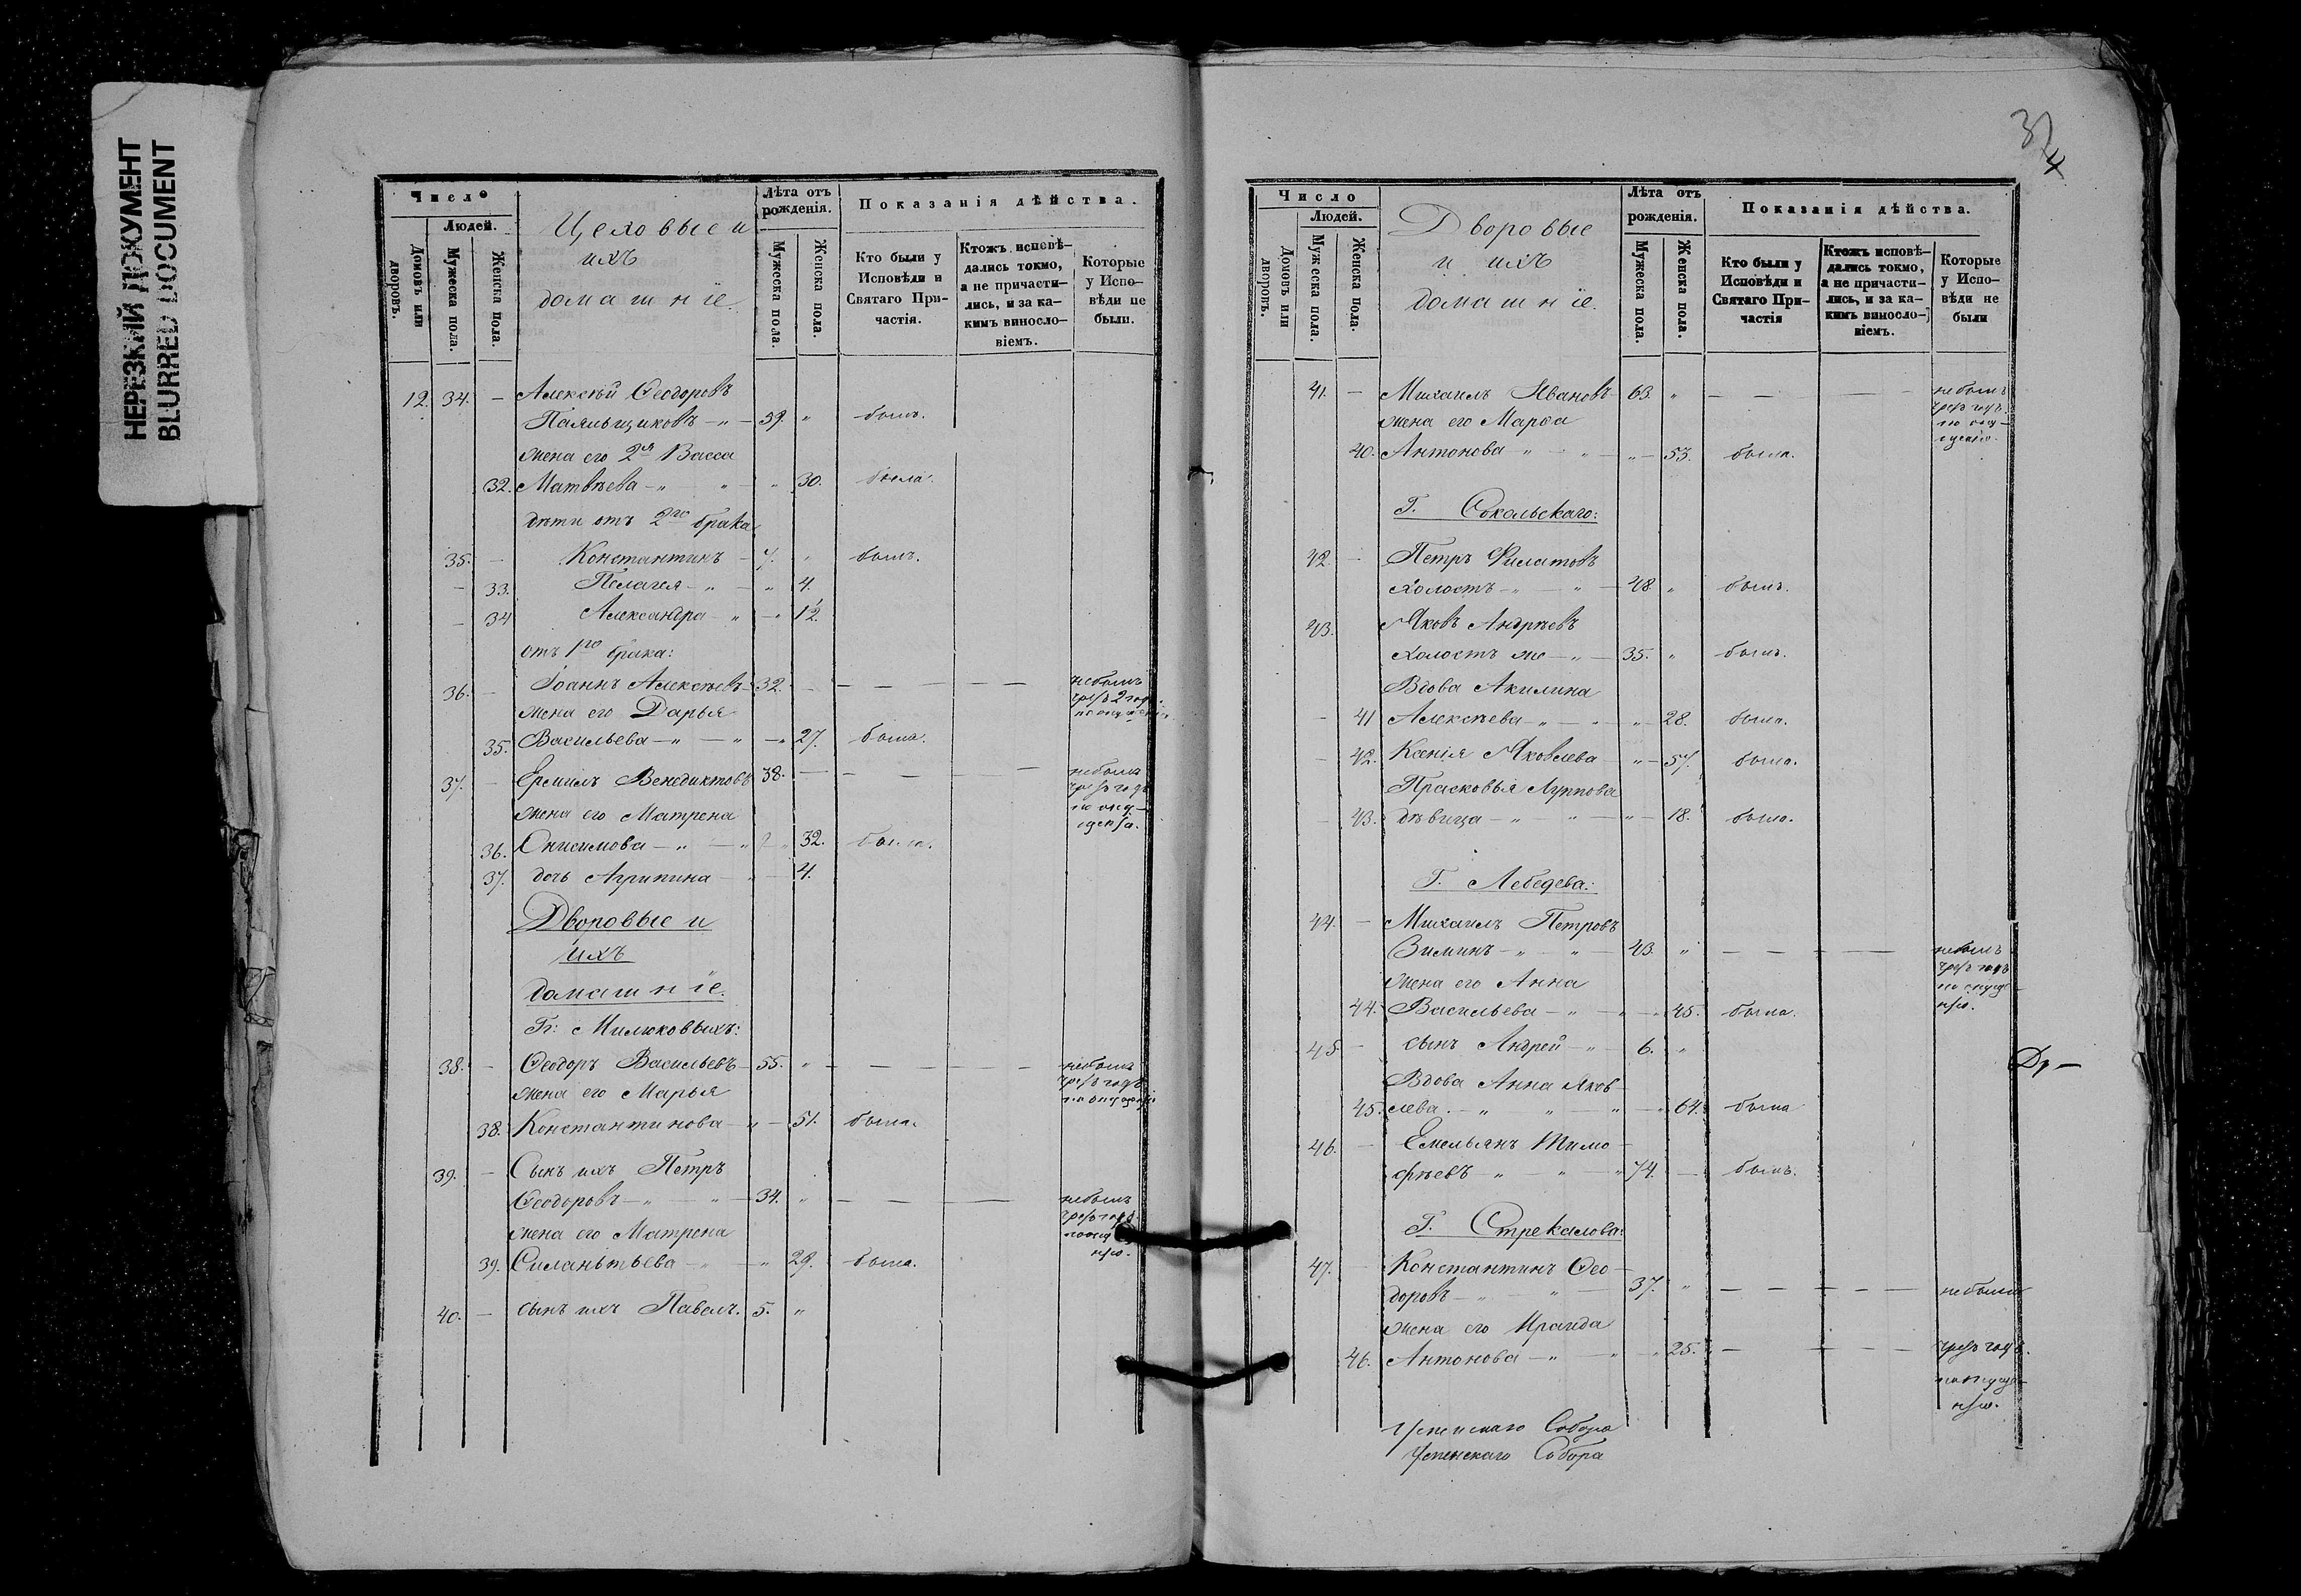 НЕРЕЗКИЙ ДОКУМЕНТ
BLURRED DOCUMENT
Число
Людей.
Домовъ или дворовъ.
Мужеска пола.
Женска пола.
Цеховые и
ихъ
домашніе.
Лѣта отъ
рожденія.
Мужеска пола.
Женска пола.
Показанія дѣйства.
Кто были у
Исповѣди и
Святаго При-
частія.
Ктожъ исповѣ-
дались токмо,
а не причасти-
лись, и за ка-
кимъ винослo-
віемъ.
Которые
у Испо-
вѣди не
были.
12. 34. — Алексѣй Ѳеодоровъ
Паяльщиковъ — „ — 59. „ былъ.
жена его 2я Васса
32. Матвѣева — „ „ „ 30. была.
дѣти отъ 2го брака
35. — Константинъ — 7. „ былъ.
— 33. Пелагея — „ — „ 4.
— 34 Александра — „ — „ 1/2.
отъ 1го брака:
36. — Іоаннъ Алексѣевъ — 32. — — — — — небылъ
чрезъ 2 года
по опущенію
жена его Дарья
35. Васильева — „ — „ — „ 27. была.
37. — Ермилъ Венедиктовъ 38. — — — — небылъ
чрезъ годъ
по опу-
щенію.
жена его Матрена
36. Онисимова — „ — „ „ 32. была.
37. дочь Агрипина — „ — 4.
Дворовые и
ихъ
домашніе.
Гг: Милюковыхъ:
38. — Ѳеодоръ Васильевъ — 55. „ — — — — — небылъ
чрезъ годъ
по опущенію
жена его Марья
38. Константинова — „ — 51. была.
39. — Сынъ ихъ Петръ
Ѳеодоровъ — „ — „ — 34. „ — — — небылъ
чрезъ годъ
по опуще
нію.
жена его Матрена
39. Силантьева — „ — „ 29. была.
40. — сынъ ихъ Павелъ. 5. „
34
Число
Людей.
Домовъ или дворовъ.
Мужеска пола.
Женска пола.
Дворовые
и ихъ
домашніе.
Лѣта отъ
рожденія.
Мужеска пола.
Женска пола.
Показанія дѣйства.
Кто были у
Исповѣди и
Святаго При-
частія
Ктожъ исповѣ-
дались токмо,
а не причасти-
лись, и за ка-
кимъ винослo-
віемъ.
Которые
у Испо-
вѣди не
были
41. — Михаилъ Ивановъ — 63. „ — — — — небылъ
чрезъ годъ
по опу-
щенію.
жена его Марѳа
40. Антонова „ — „ — „ — 53. была.
Г. Сокольскаго:
42. — Петръ Филатовъ
холостъ — „ — „ — 48. „ былъ.
43. Яковъ Андреевъ
холостъ же — „ — 35. „ былъ.
Вдова Акилина
— 41 Алексѣева — „ — „ „ — 28. была.
— 42. Ксенія Яковлева „ — 57. была.
Прасковья Луппова
— 43. дѣвица — „ — „ — „ — 18. была.
Г. Лебедева:
44. — Михаилъ Петровъ
Зиминъ — „ — „ — 43. „ — — — — небылъ
чрезъ годъ
по опуще-
нію.
жена его Анна
44. Васильева — „ — „ — „ 45. была.
45 — сынъ Андрей — „ — 6. „
Др —
Вдова Анна Яков-
45. лева. — „ „ — „ — „ 64. была
46. — Емельянъ Тимо-
фѣевъ „ — „ — „ 74. — былъ.
Г. Стрекалова:
47. — Константинъ Ѳео-
доровъ — „ — „ — 37. „ — — — — — небылъ
жена его Ираида
46. Антонова — „ — „ — „ 25. — — — — чрезъ годъ.
по опуще-
нію.
Успенскаго Собора
Успенскаго Собора